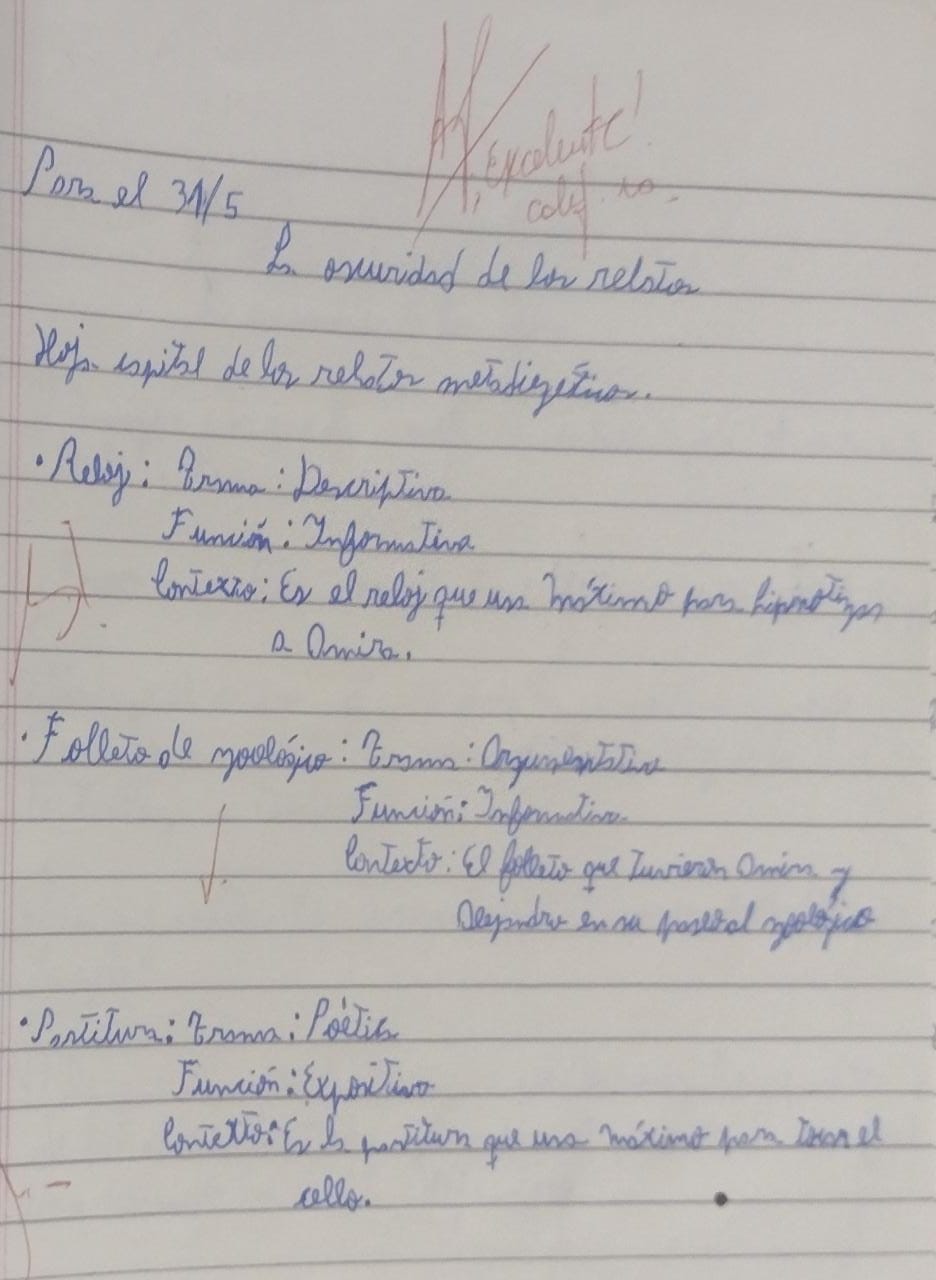 Excelente!
Para el 31/5
La oscuridad de los relatos
Hoja espital de los relatos metadiegéticos.
• Reloj: Trama: Descriptiva
Función: Informativa
Contexto: Es el reloj que usa Máximo para hipnotizar
a Amira.
• Folleto de zoológico: Trama: Argumentativa
Función: Informativa
Contexto: El folleto que tuvieron Amira y
Alejandro en su paseo al zoológico
• Partitura: Trama: Poética
Función: Expositiva
Contexto: Es la partitura que usa máximo para tocar el
cello.